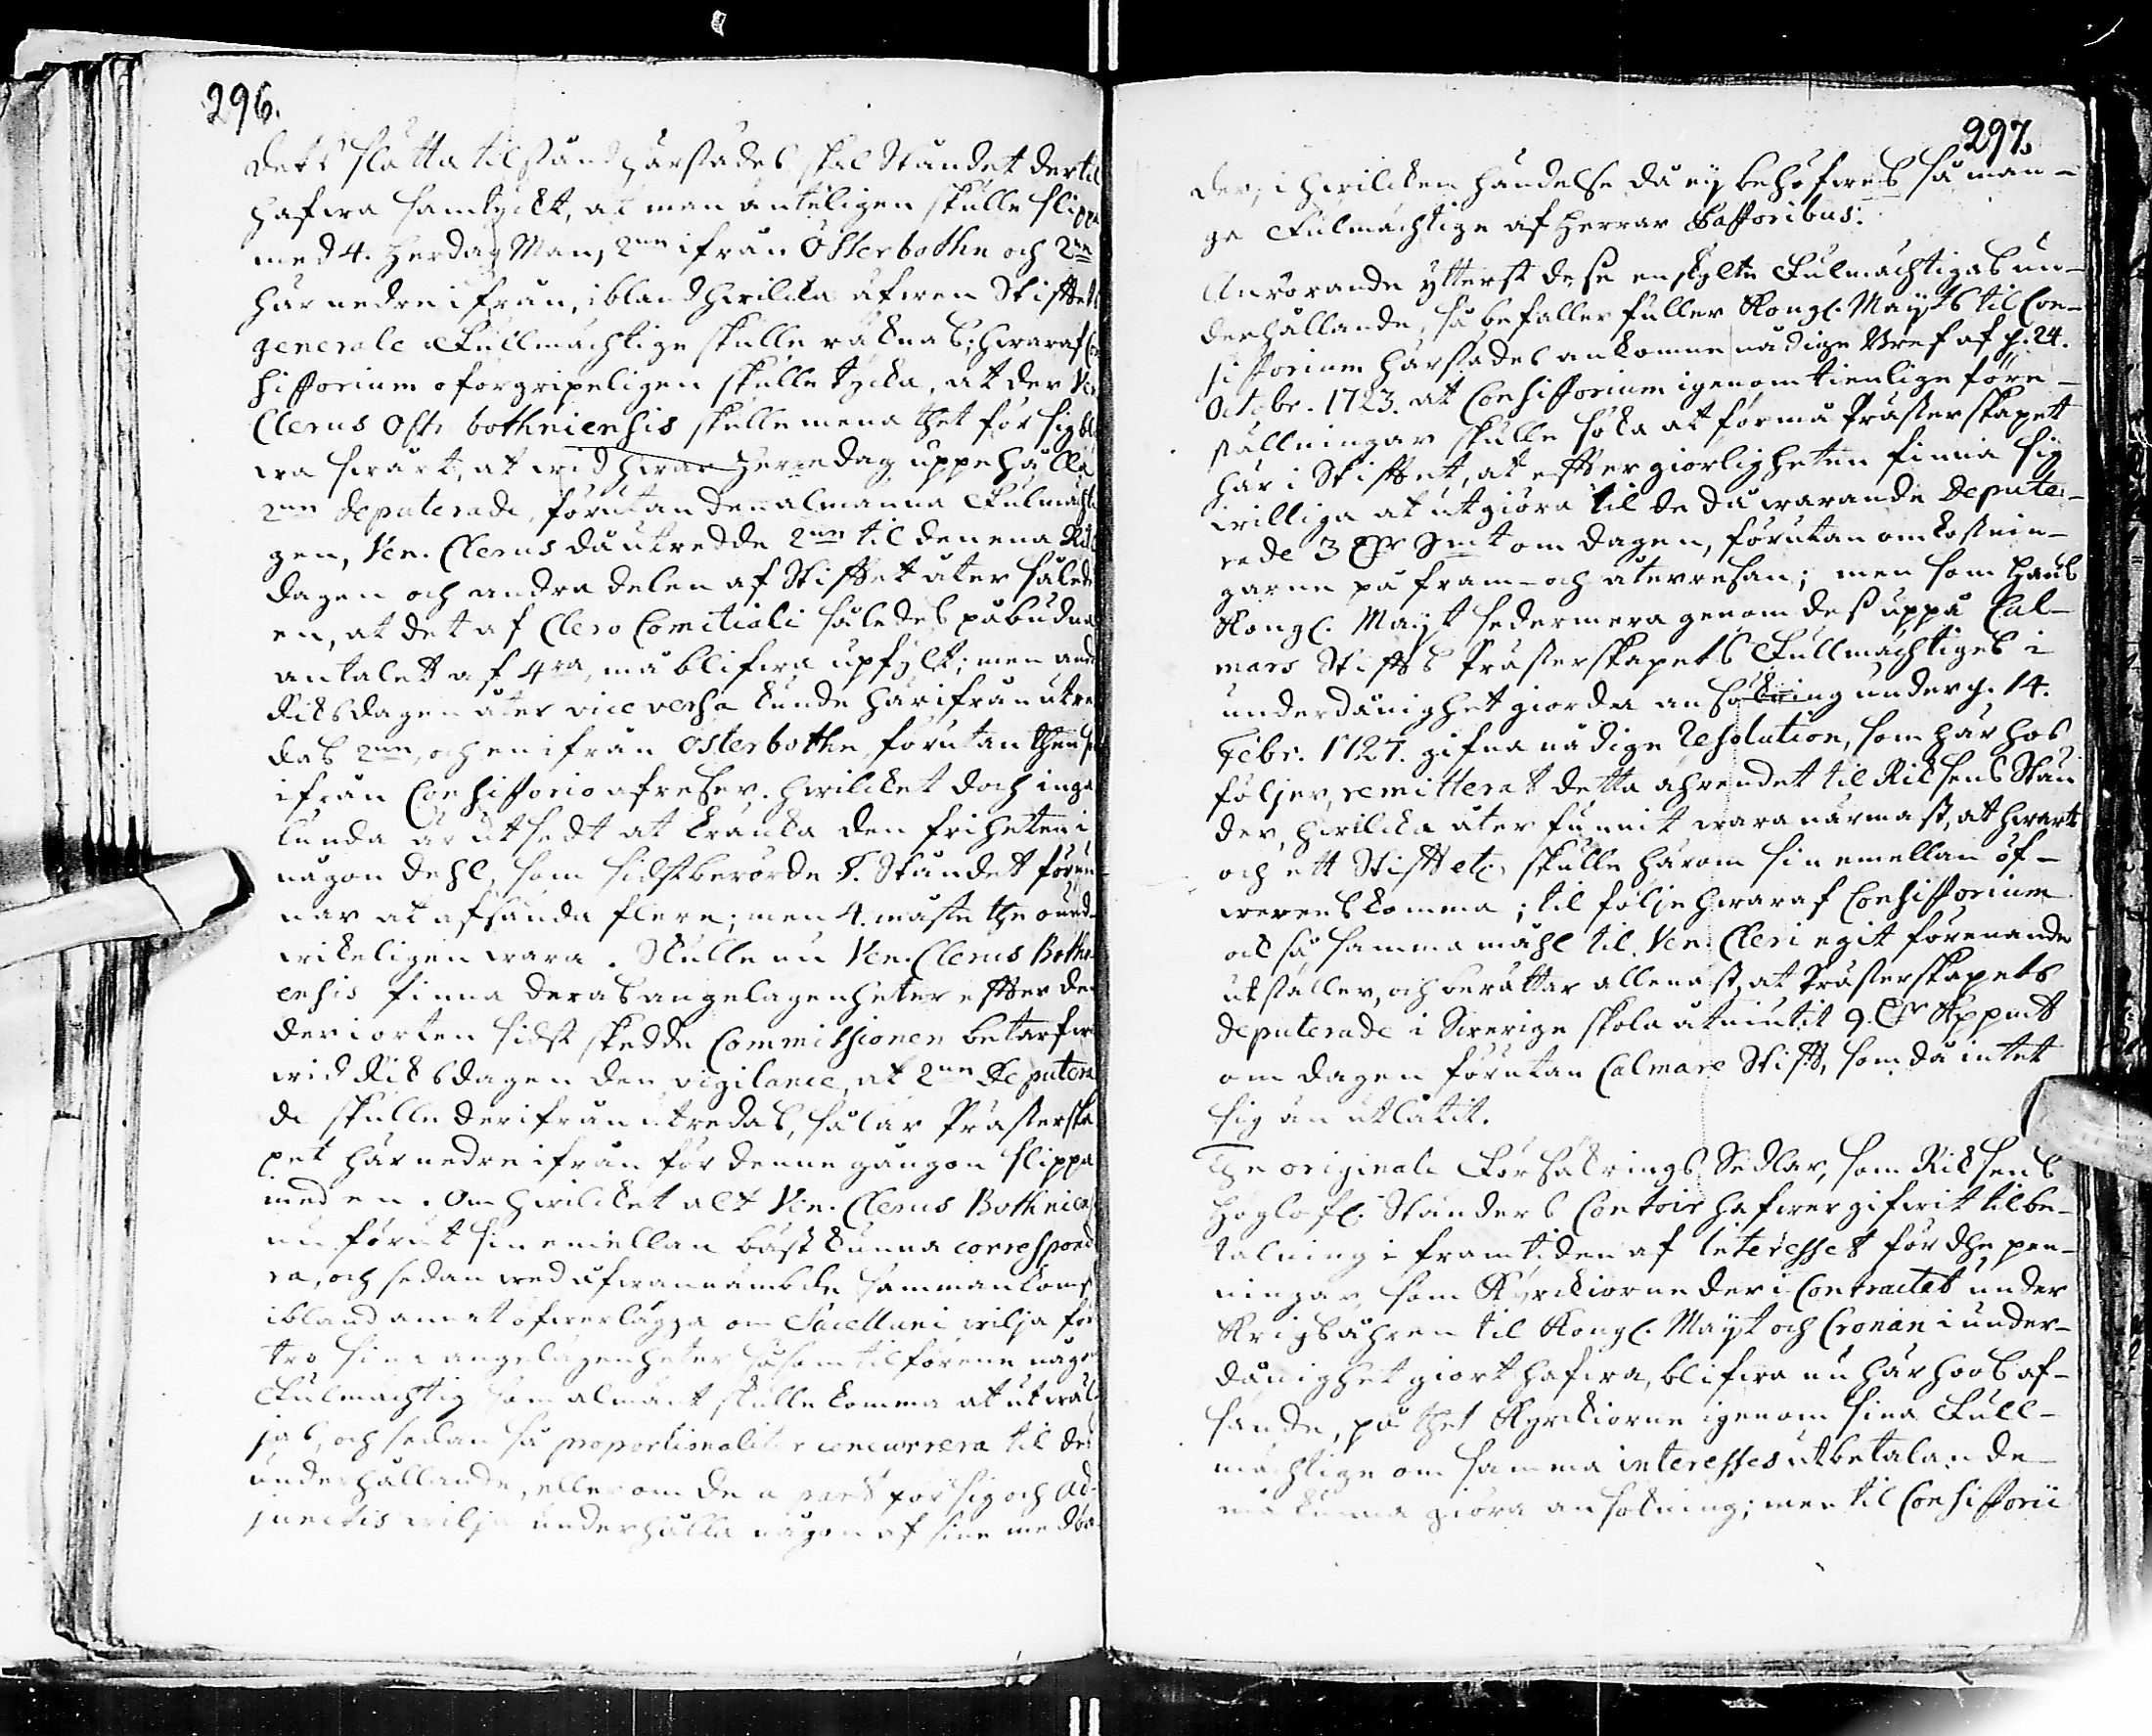 296.
dets slätta tilstånd härstädes skal Ståndet dertil
hafwa samtyckt, at man änteligen skulle slippa
med 4. Herdag Man, 2nn ifrån Österbothn och 2nn
här nedre ifrån, ibland hwilcka äfwen Stifftets
generale Fullmächtige skulle räcknas; hwaraf Con
sistorium oförgripeligen skulle tycka, at der Ven.
Clerus Ostrobothniensis skulle mena thet för sig bli
wa swårt, at wid hwar herredag uppehålla
2nn deputerade, förutan den almänna Fulmächti
gen, Ven. Clerus då utredde 2nn til den ena Riks
dagen och andra delen af Stifftet åter således
en, at det af Clero Comitiali således påbudna
antalet af 4ra, må blifwa upfylt; men andra
Riksdagen åter vice versa kunde härifrån utre
das 2nn, och en ifrån Österbothn, förutan then som
ifrån Consistorio afreser. hwilcket doch inga
lunda är utsedt at kränka den friheten i
någon dehl, som sidstberörde T. Ståndet förme
nar at afsända flere; men 4. måste the ound
wikeligen wara. Skulle nu Ven. Clerus Bothni
ensis finna deras angelägenheter effter den
der i orten sidst skedde Commissionen betarfwa
wid Riksdagen den vigilance, at 2nn Deputera
de skulle derifrån utredas, så lär Prästerska
pet här nedre ifrån för denne gången slippa
med en. Om hwilcket alt Ven. Clerus Bothniens
nu förut sin emellan bäst kunna correspond
ra, och sedan wed äfwannämbde sammankomst
ibland annat öfwerlägga om Sacellani wilja för
tro sina angelägenheter såsom tilförene någon
Fulmächtig som almänt skulle komma at utwäl
jas, och sedan så proportionaliter concurrera til des
underhållande, eller om de a part för sig och Ad-
junctis wilja underhålla någon af sine medbrö
297.
der, i hwilcken händelse då ey behöfwes så mån-
ge Fulmächtige af Herrar Pastoribus.
Anrörande ytterst dese enskylte Fulmächtigas un-
derhållande, så befaller fuller Kongl. Maijts til Con-
sistorium härstädes ankomne nådige Bref af d. 24.
Octobr. 1723. at Consistorium igenom tienlige före-
ställningar skulle söka at förmå Prästerskapet
här i Stifftet, at effter giörligheten finna sig
willige at utgiöra til de då warande depute-
rede 3 Dlr Smt om dagen, förutan omkostnin-
garne på fram- och återresan; men som Hans
Kongl. Maijt sedermera genom dess uppå Cal-
mars Stiffts Prästerskapets Fullmächtiges i
underdånighet giorda ansökning under d. 14.
Febr. 1727. gifna nådige Resolution, som här hos
följer, remitterat detta ährendet til Riksens Stän
der, hwilcka åter funnit wara närmast, at hwart
och ett Stifft etc. skulle härom sin emellan öf-
werenskomma; til följe hwaraf Consistorium
ock så samma måhl til Ven. Cleri egit förenande
utställer, och berättar allenast, at Prästerskapets
deputerade i Swerige skola åtniutit 9. Dlr Kppmt
om dagen förutan Calmare Stifft, som då intet
sig än utlåtit.
The originale Försäkrings Sedlar, som Riksens
Höglofl. Ständers Contoir hafwer gifwit til be-
talning i framtiden af Interesset för the pen-
ningar, som Kyrckiorne der i Contractet under
Krigsåhren til Kongl. Maijt och Cronan i under-
dånighet giort hafwa, blifwa nu här hoos af-
sände, på thet Kyrckiorne igenom sina Full-
mächtige om samma interesses utbetalande
må kunna giöra ansökning; men til Consistorii